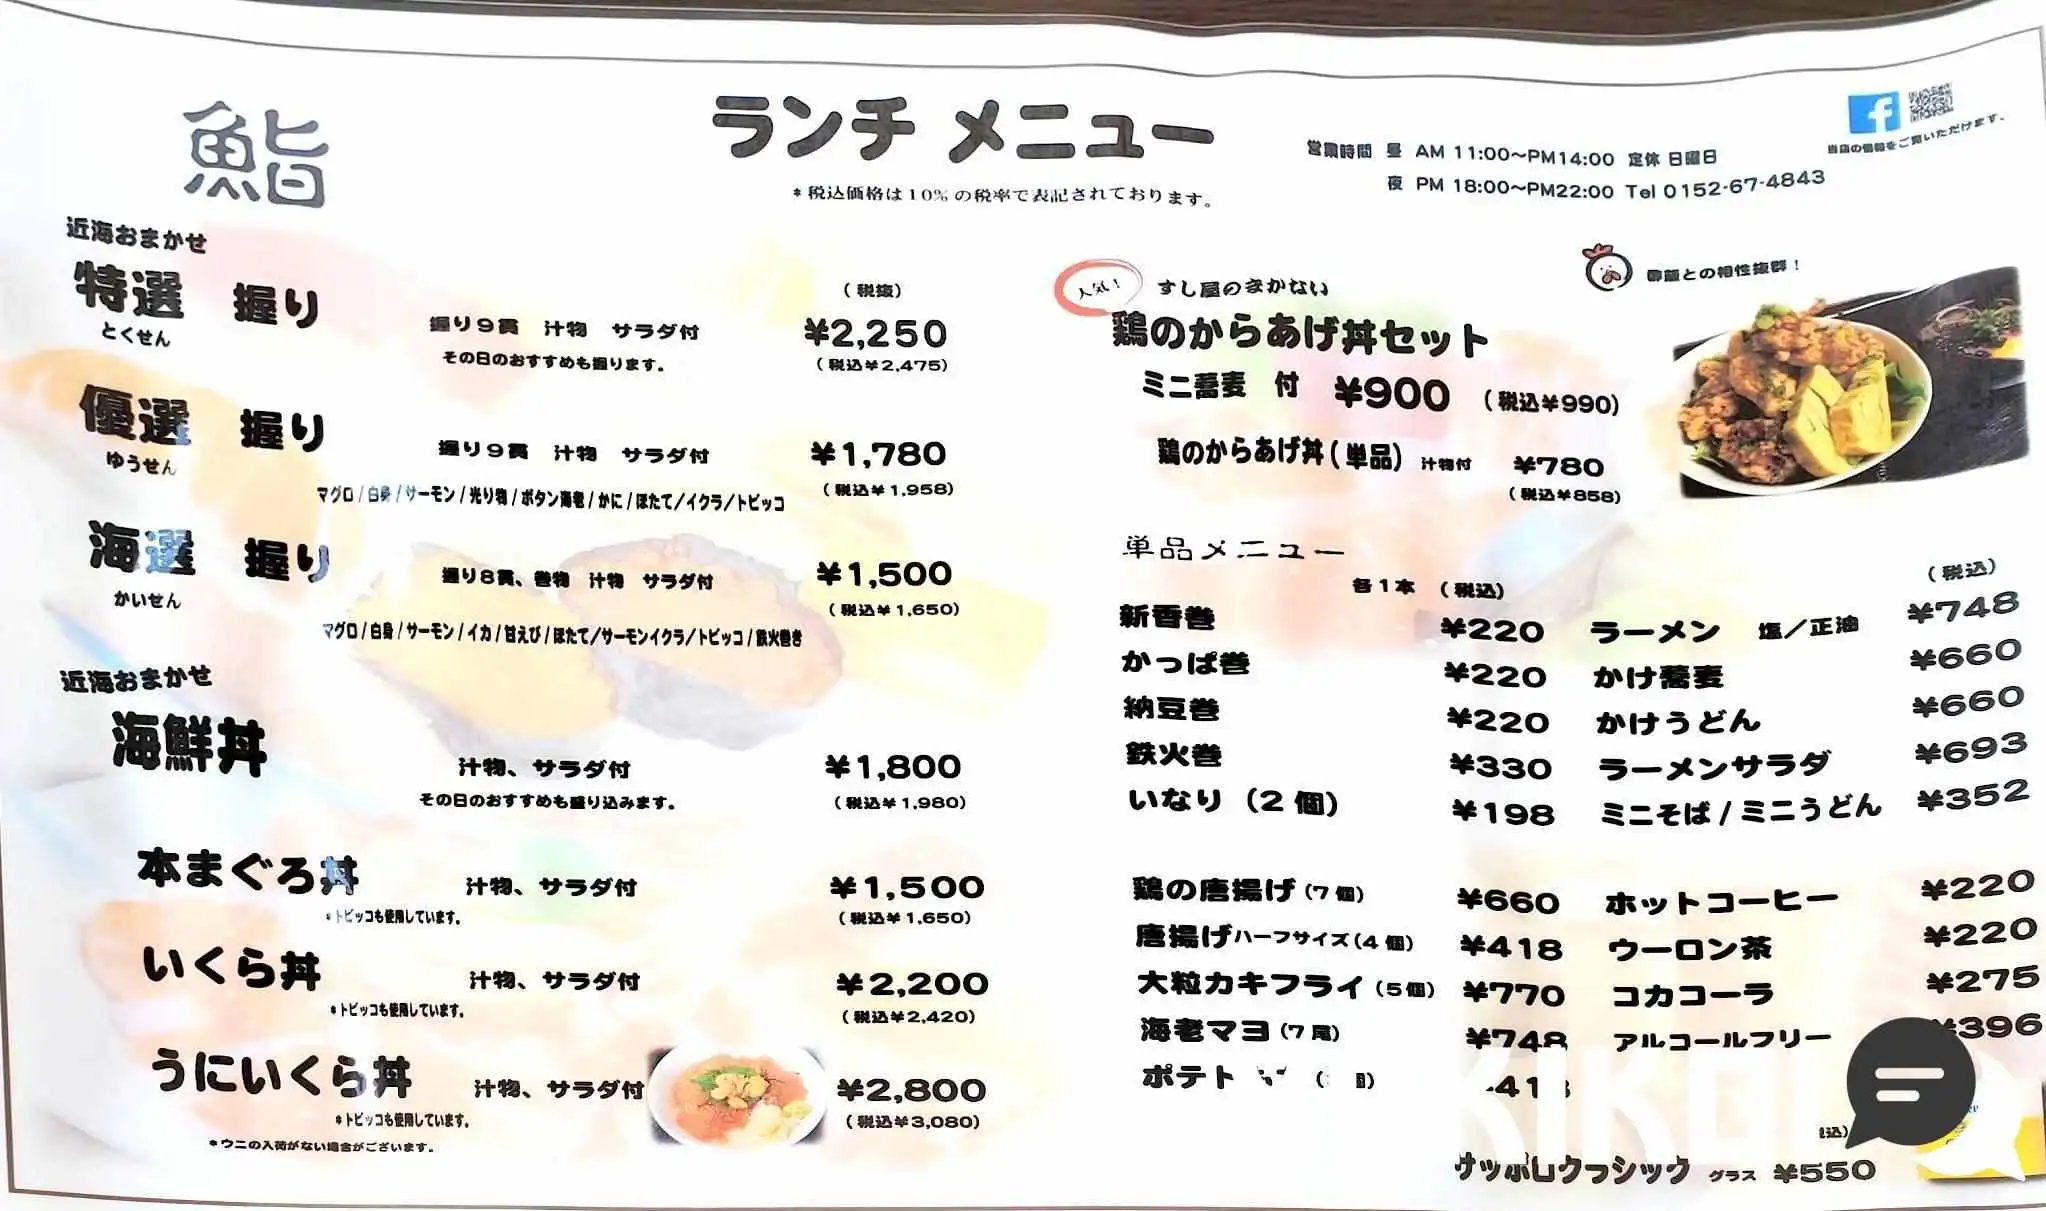 鮨
ランチ メニュー
*税込価格は10%の税率で表記されております。
営業時間 昼 AM 11:00〜PM14:00 定休 日曜日
夜 PM 18:00〜PM22:00 Tel 0152-67-4843
当店の情報をご覧いただけます。
近海おまかせ
特選 握り
とくせん
握り9貫 汁物 サラダ付
その日のおすすめも握ります。
(税抜)
¥2,250
(税込¥2,475)
優選 握り
ゆうせん
握り9貫 汁物 サラダ付
¥1,780
(税込¥1,958)
マグロ/白身/サーモン/光り物/ボタン海老/かに/ほたて/イクラ/トビッコ
海選 握り
かいせん
握り8貫、巻物 汁物 サラダ付
¥1,500
(税込¥1,650)
マグロ/白身/サーモン/イカ/甘えび/ほたて/サーモンイクラ/トビッコ/鉄火巻き
近海おまかせ
海鮮丼
汁物、サラダ付
¥1,800
その日のおすすめも盛り込みます。
(税込¥1,980)
本まぐろ丼
汁物、サラダ付
¥1,500
*トビッコも使用しています。
(税込¥1,650)
いくら丼
汁物、サラダ付
¥2,200
*トビッコも使用しています。
(税込¥2,420)
うにいくら丼
汁物、サラダ付
¥2,800
*トビッコも使用しています。
(税込¥3,080)
*ウニの入荷がない場合がございます。
人気!
すし屋のまかない
酢飯との相性抜群!
鶏のからあげ丼セット
ミニ蕎麦 付 ¥900 (税込¥990)
鶏のからあげ丼(単品) 汁物付 ¥780
(税込¥858)
単品メニュー
各1本 (税込)
新香巻 ¥220
かっぱ巻 ¥220
納豆巻 ¥220
鉄火巻 ¥330
いなり (2個) ¥198
鶏の唐揚げ(7個) ¥660
唐揚げハーフサイズ(4個) ¥418
大粒カキフライ(5個) ¥770
海老マヨ(7尾) ¥748
ポテト
(税込)
ラーメン 塩/正油 ¥748
かけ蕎麦 ¥660
かけうどん ¥660
ラーメンサラダ ¥693
ミニそば/ミニうどん ¥352
ホットコーヒー ¥220
ウーロン茶 ¥220
コカコーラ ¥275
アルコールフリー ¥396
サッポロクラシック グラス ¥550